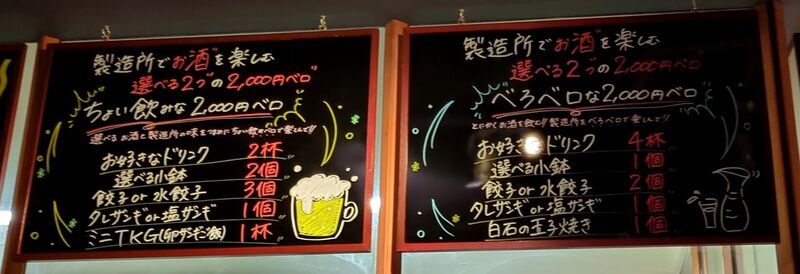 製造所でお酒を楽しむ
選べる2つの2,000円ベロ
ちょい飲みな2,000円ベロ
お好きなドリンク 2杯
選べる小鉢 2個
餃子or水餃子 3個
タレザンギor塩ザンギ 1個
ミニTKG(卵かけご飯) 1杯
製造所でお酒を楽しむ
選べる2つの2,000円ベロ
べろべロな2,000円ベロ
とにかくお酒を飲む!!製造所をべろべロで楽しんで!!
お好きなドリンク 4杯
選べる小鉢 1個
餃子or水餃子 2個
タレザンギor塩ザンギ 1個
白石の玉子焼き 1個